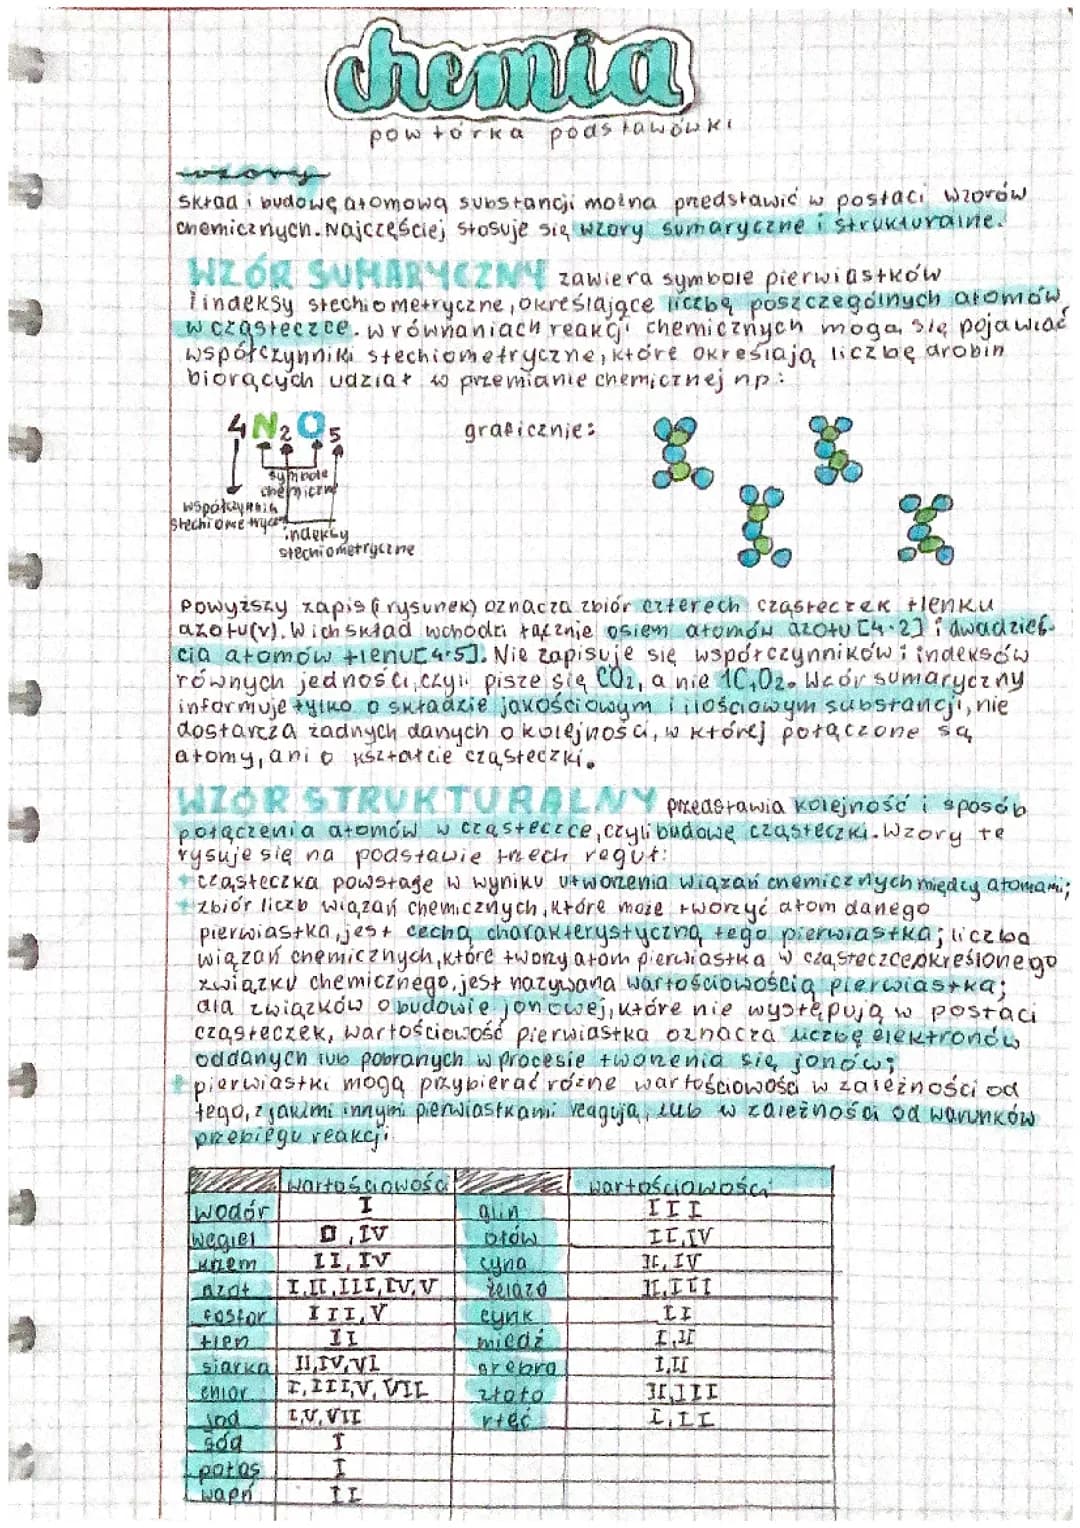 chemia
powtórka podstawówki
wzory
skład i budowę atomową substancji można przedstawić w postaci wzorów
chemicznych. Najczęściej stosuje się wzory sumaryczne i strukturalne.
WZÓR SUMARYCZNY zawiera symbole pierwiastków
i indeksy stechiometryczne, określające liczbę poszczególnych atomów
w cząsteczce. w równaniach reakcji chemicznych mogą się pojawiać
współczynniki stechiometryczne, które określają liczbę drobin
biorących udział w przemianie chemicznej np:
4N₂O₅ graficznie:
symbole
chemiczne
współczynnik
stechiometryczny
indeksy
stechiometryczne
Powyższy zapis (i rysunek) oznacza zbiór czterech cząsteczek tlenku
azotu(V). W ich skład wchodzi łącznie osiem atomów azotu [4·2] i dwadzieś-
cia atomów tlenu [4·5]. Nie zapisuje się współczynników i indeksów
równych jedności, czyli pisze się CO₂, a nie 1C₁O₂. Wzór sumaryczny
informuje tylko o składzie jakościowym i ilościowym substancji, nie
dostarcza żadnych danych o kolejności, w której połączone są
atomy, ani o kształcie cząsteczki.
WZÓR STRUKTURALNY przedstawia kolejność i sposób
połączenia atomów w cząsteczce, czyli budowę cząsteczki. Wzory te
rysuje się na podstawie trzech reguł:
+ cząsteczka powstaje w wyniku utworzenia wiązań chemicznych między atomami;
+ zbiór liczb wiązań chemicznych, które może tworzyć atom danego
pierwiastka, jest cechą charakterystyczną tego pierwiastka; liczba
wiązań chemicznych, które tworzy atom pierwiastka w cząsteczce określonego
związku chemicznego, jest nazywana wartościowością pierwiastka;
dla związków o budowie jonowej, które nie występują w postaci
cząsteczek, wartościowość pierwiastka oznacza liczbę elektronów
oddanych lub pobranych w procesie tworzenia się jonów;
+ pierwiastki mogą przybierać różne wartościowości w zależności od
tego, z jakimi innymi pierwiastkami reagują, lub w zależności od warunków
przebiegu reakcji
wartościowości wartościowości
wodór I glin III
węgiel II, IV ołów II, IV
krzem II, IV cyna II, IV
azot I, II, III, IV, V żelazo II, III
fosfor III, V cynk II
tlen II miedź I, II
siarka II, IV, VI srebro I, II
chlor I, III, V, VII złoto II, III
jod I, V, VII rtęć I, II
sód I
potas I
wapń II